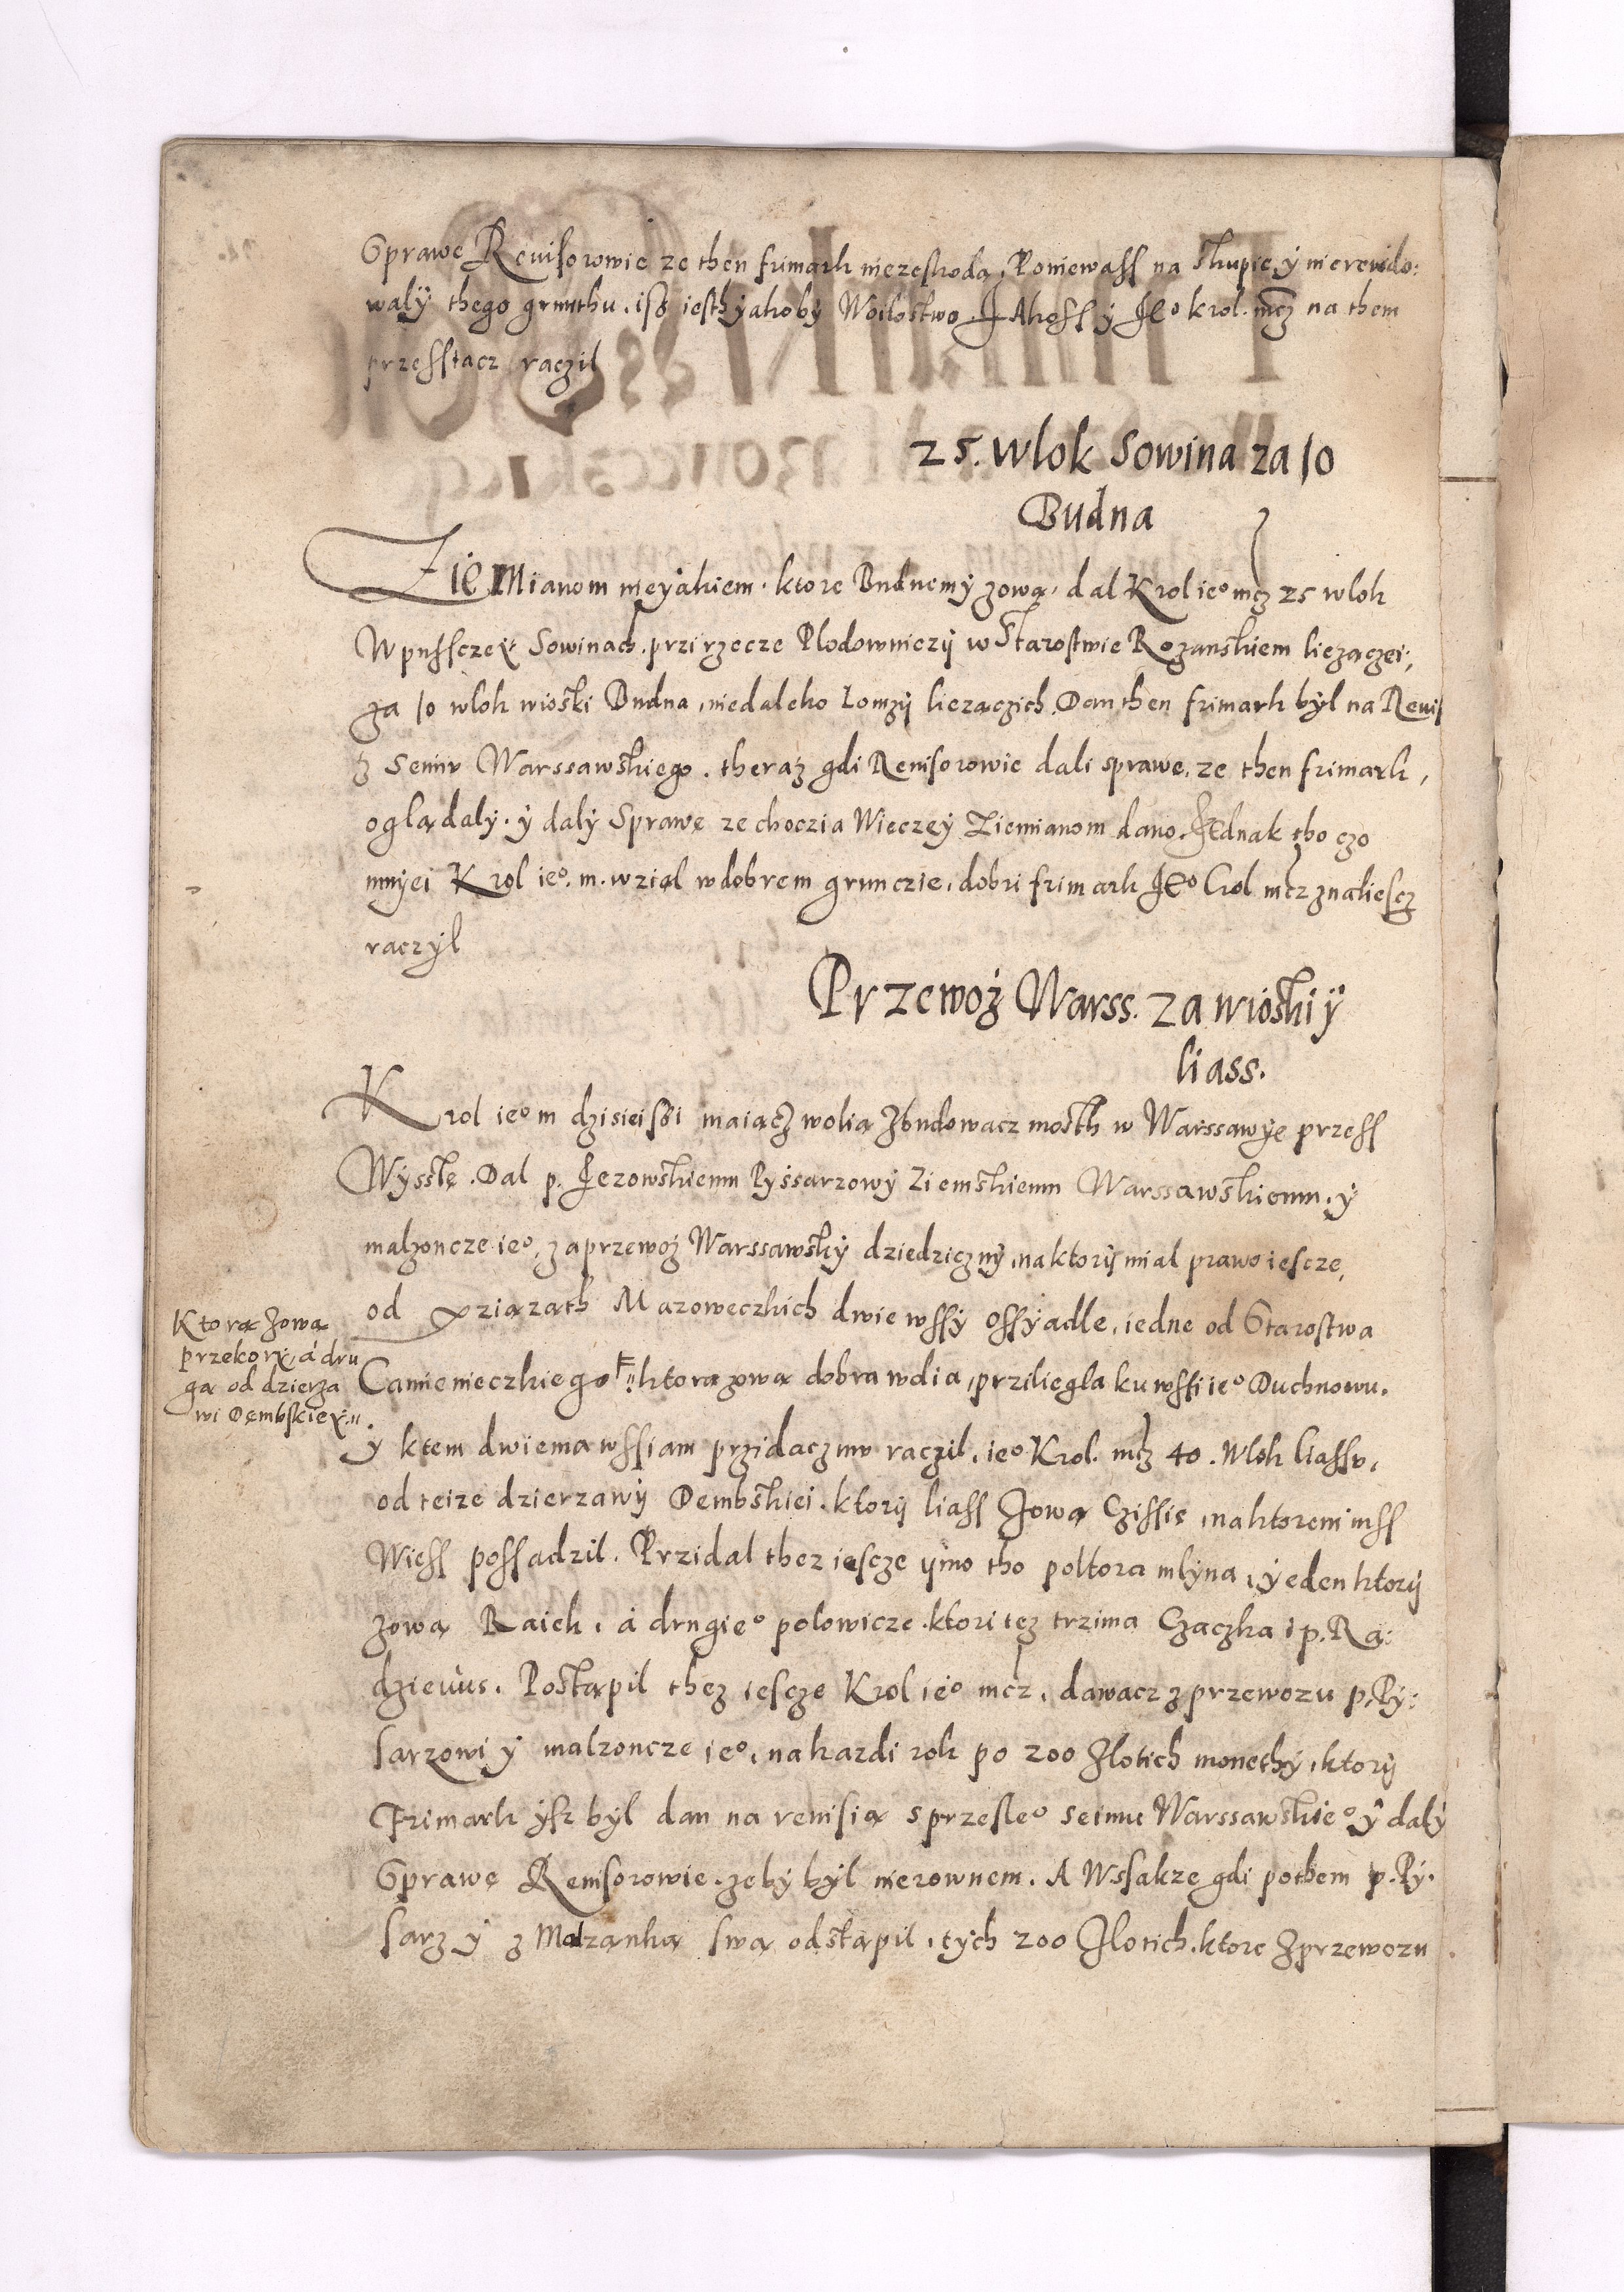 Sprawę Reuisorowie ze then frimark niezeskodą, Poniewass na skupie y nierewido:
walÿ thego grunthu, isz iesth yakoby Woitostwo. A kess y Je° krol. mcz na them
przesstacz raczil
25. Wlok Sowina za 10
Budna
Ziemianom nieyakiem. ktore Budnemy zową, dal Krol ie° mcz 25 wlok
W pussczey Sowinach. przi rzecze Plodowniczÿ w Starostwie Rozanskiem liezaczei,
za 10 wlok wioski Budna, niedaleko Lomzÿ liezaczich. Dan then frimark byl na Reuis
z Seimv Warssawskiego. theraz gdi Reuisorowie dali sprawę, ze then frimark,
oglądaly. y daly Sprawę ze choczia Wieczey Ziemianom dano. Jednak tho czo
mnyei Krol ie°. m. wziąl w dobrem grunczie, dobri frimark Je° Crol mcz znaliescz
raczyl
Przewoz Warss. za wioski ÿ
liass.
Krol ie° m dzisieiszi maiącz wolią Zbudowacz mosth w Warssawye przess
Wysslę. Dal p. Jezowskiemu Pyssarzowy Ziemskiemu Warssawskiemu. y
malzoncze ie°, za przewoz Warssawsky dziedziczny, na ktorÿ mial prawo iescze,
od xziązath Mazoweczkich dwie wssy ossyadle, iedne od Starostwa
Camienieczkiego ktorą zową dobra wdia, prziliegla ku wssi ie° Duchnowu.
Ktorą Zową
przekory, á dru
gą od dzierza
wi Dembskiey.
y ktem dwiema wssiam przidacz mv raczil, ie° Krol. mcz 40. Wlok liassv,
od teize dzierzawÿ Dembskiei. ktorÿ liass Zową Czissie, na ktorem inss
Wiess possadzil. Przidal thez iescze ÿmo tho poltora mlyna, yeden ktorÿ
zową Raick, á drugie° polowicze. ktori tez trzima Czaczka i p. Ra:
dzieuus. Postąpil thez iescze Krol ie° mcz, dawacz z przewozu p. Py:
sarzowi y malzoncze ie°, na kazdi rok po 200 Zlotich monethy, ktorÿ
Frimark ysz byl dan na reuisią s przesle° seimu Warssawskie° y daly
Sprawę Reuisorowie. zeby byl nierownem. A Wssakze gdi pothem p. Py.
sarz y z Malzanką swą odstąpil, tych 200 Zlotich. ktore Z przewozu